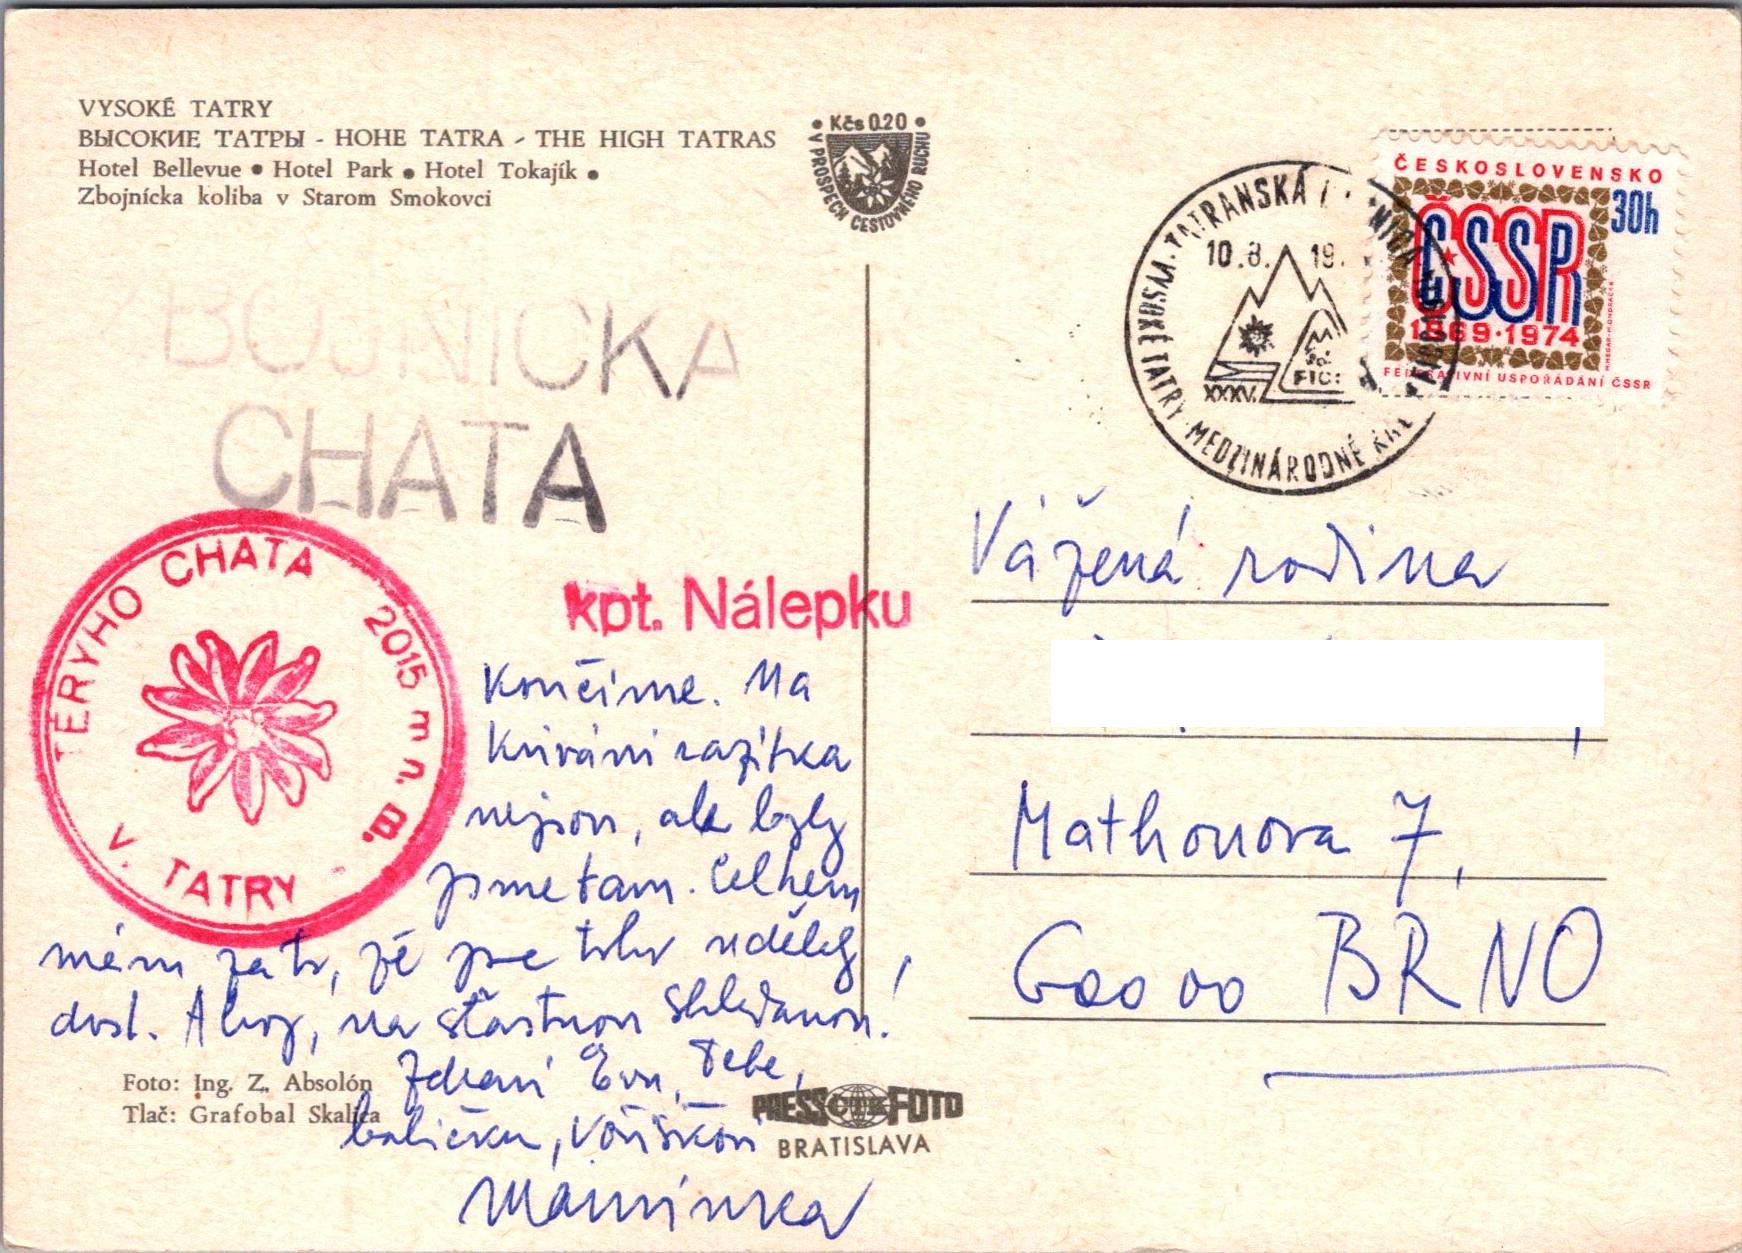 VYSOKÉ TATRY
ВЫСОКИЕ ТАТРЫ - HOHE TATRA - THE HIGH TATRAS
Hotel Bellevue • Hotel Park • Hotel Tokajík •
Zbojnícka koliba v Starom Smokovci
• Kčs 0.20 •
V PROSPECH CESTOVNÉHO RUCHU
VYSOKÉ TATRY • TATRANSKÁ
MEDZINÁRODNÉ
10.8. 19
XXXV. FIC
ČESKOSLOVENSKO
30h
ČSSR
1969·1974
FEDERATIVNÍ USPOŘÁDÁNÍ ČSSR
ZBOJNICKA
CHATA
TÉRYHO CHATA 2015 m n. m.
V. TATRY
kpt. Nálepku
Končíme. Na
Kriváni razítka
nejsou, ale byly
jsme tam. Celkem
mám za to, že jsme toho udělaly
dost. Ahoj, na šťastnou shledanou!
Zdraví Evu, Tebe,
babičku, Voříškovi
Maminka
Vážená rodina
Mathonova 7,
600 00 BRNO
Foto: Ing. Z. Absolón
Tlač: Grafobal Skalica
PRESSFOTO
BRATISLAVA